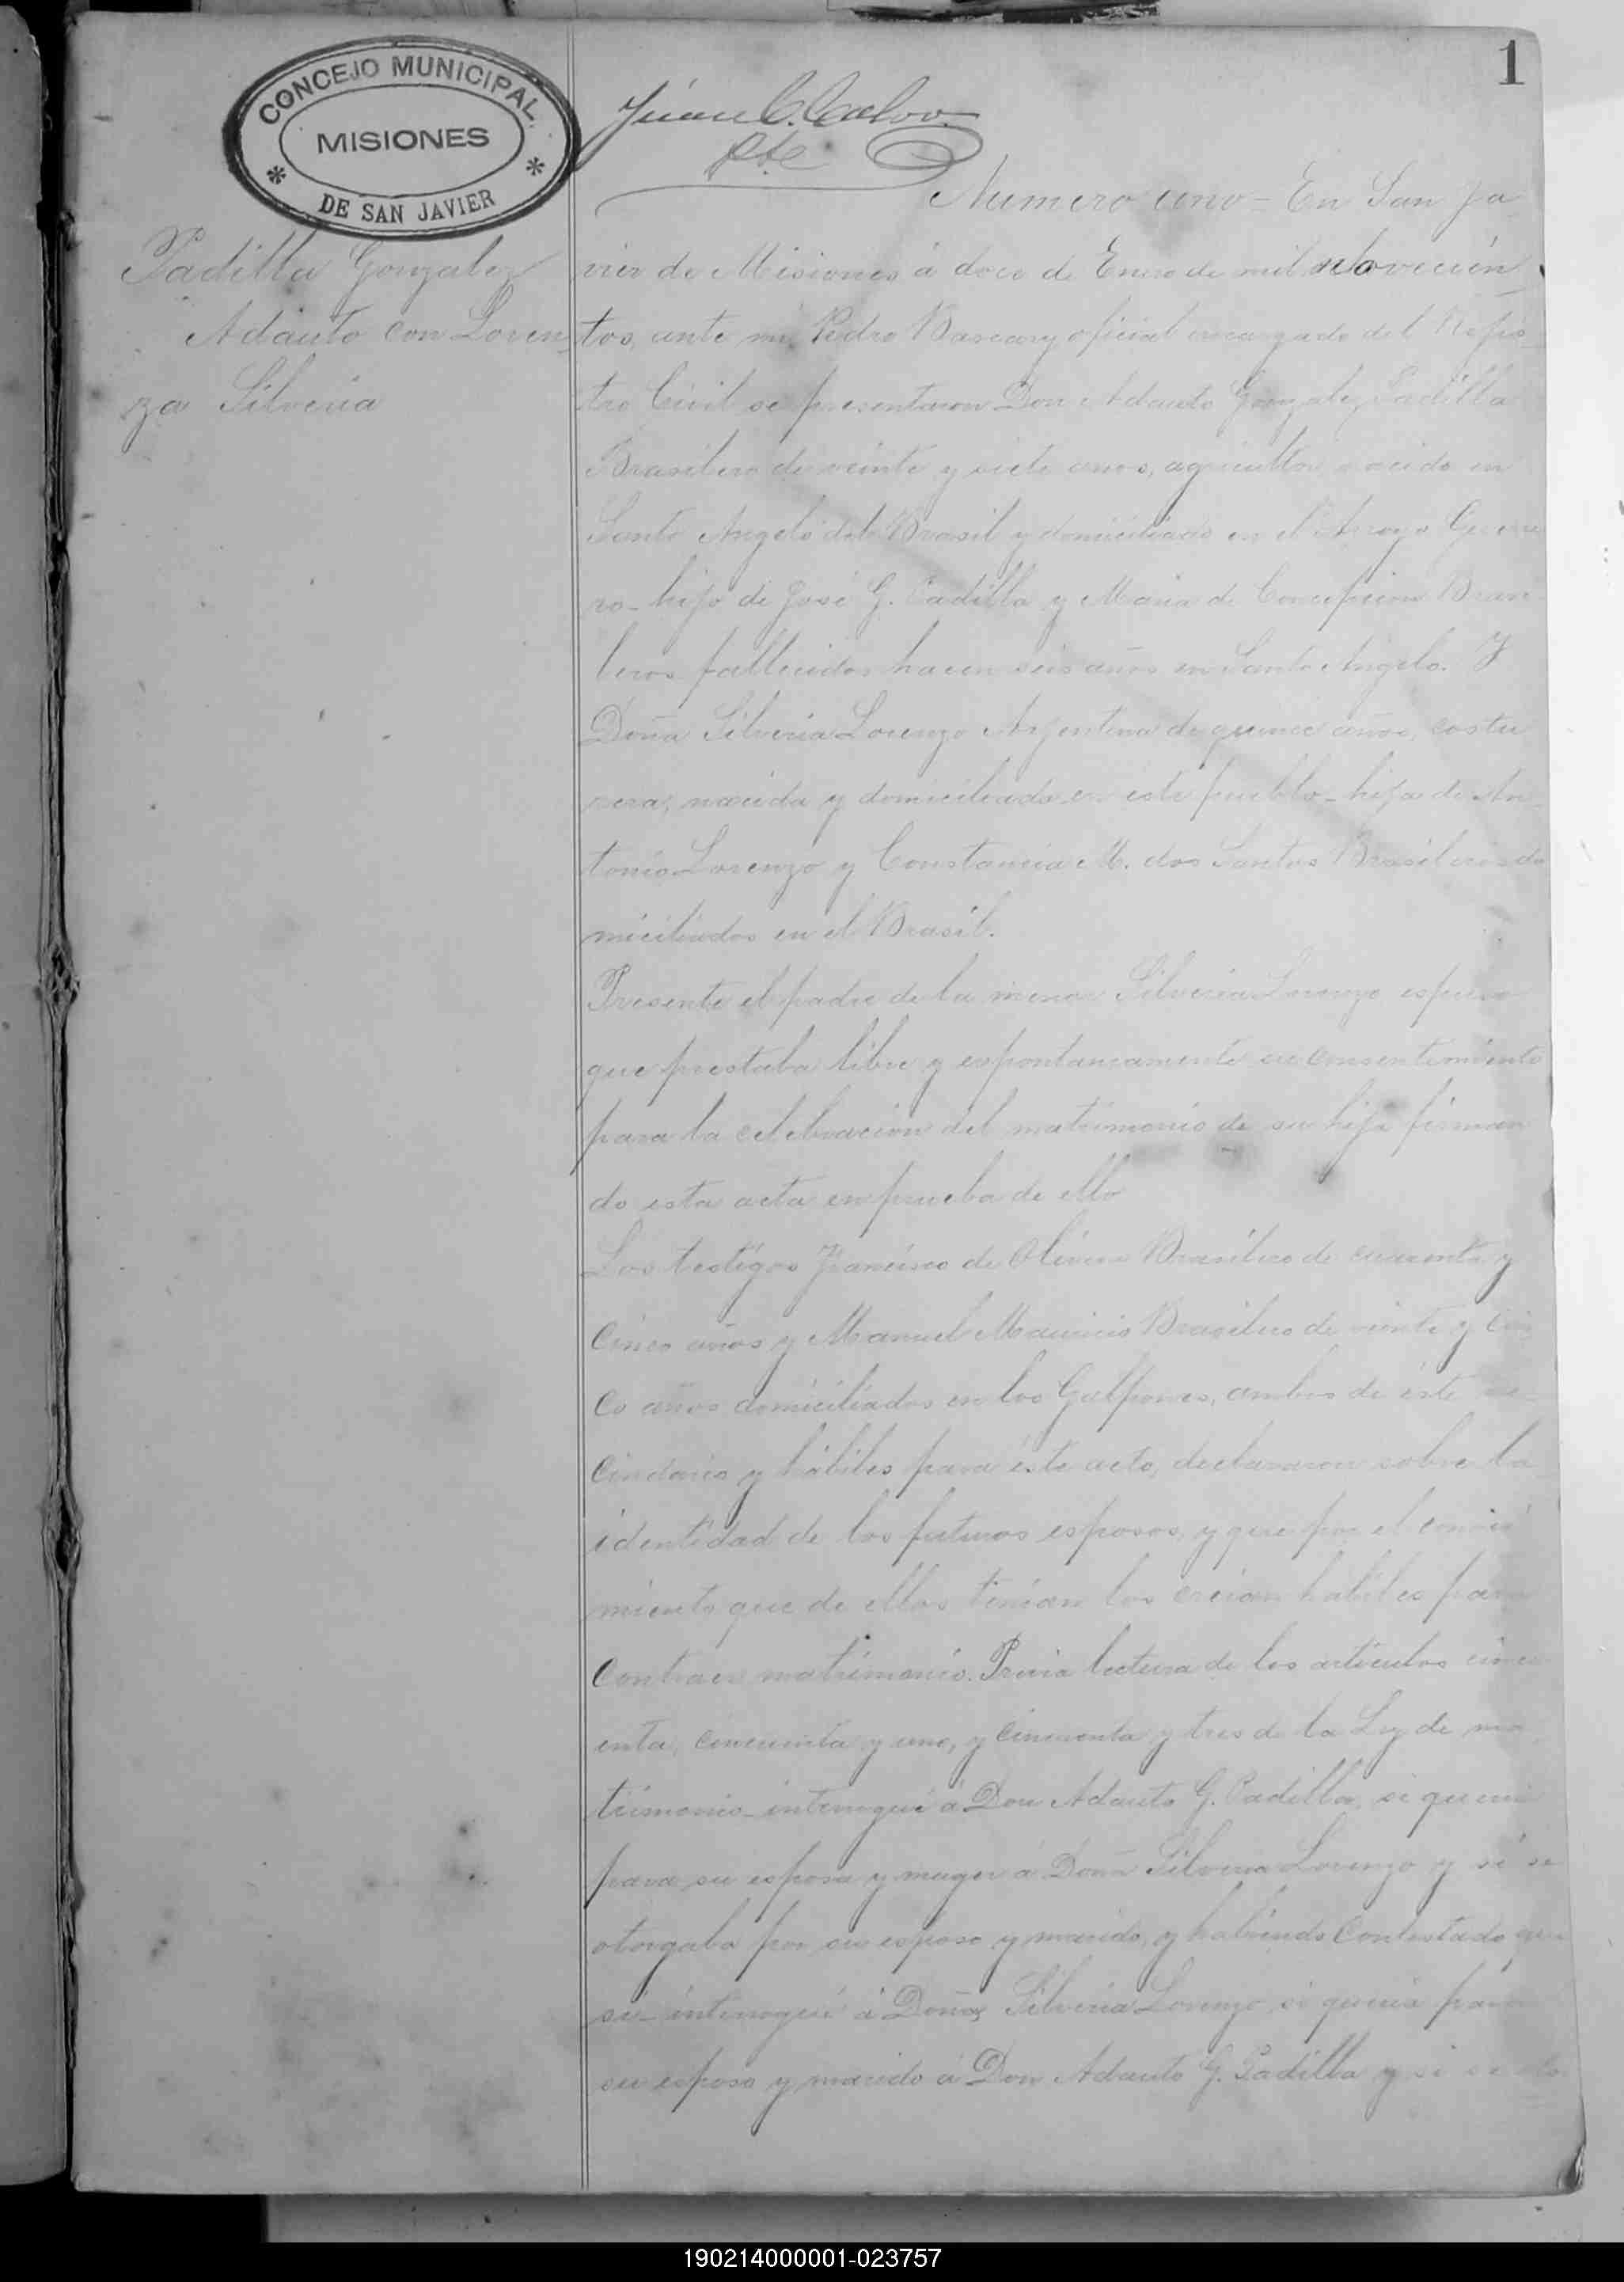 1
CONCEJO MUNICIPAL
MISIONES
DE SAN JAVIER
Juan C. Calvo
Pte
Padilla Gonzalez
Adauto con Loren
za Silveria
Numero uno = En San Ja
vier de Misiones á doce de Enero de mil novecien
tos, ante mi Pedro Bascary oficial encargado del Regis
tro Civil se presentaron Don Adauto Gonzalez Padilla
Brasilero de veinte y siete anos, agricultor nacido en
Santo Angelo del Brasil y domiciliado en el Arroyo Guerre
ro - hijo de José G. Padilla y Maria de Concepcion Brasi
leros fallecidos hacen seis años en Santo Angelo. Y
Doña Silveria Lorenzo Argentina de quince años, costu
rera, nacida y domiciliada en este pueblo - hija de An
tonio Lorenzo y Constancia M. dos Santos Brasileros do
miciliados en el Brasil.
Presente el padre de la menor Silveria Lorenzo espuso
que prestaba libre y espontaneamente su consentimiento
para la celebracion del matrimonio de su hija firman
do esta acta en prueba de ello
Los testigos Francisco de Olivera Brasilero de cuarenta y
cinco años y Manuel Mauricio Brasilero de veinte y cin
co años domiciliados en los Galpones, ambos de éste ve
cindario y hábiles para éste acto, declararon sobre la
identidad de los futuros esposos, y que por el conoci
miento que de ellos tenian los creian habiles para
contraer matrimonio. Previa lectura de los articulos cincu
enta, cincuenta y uno, y cincuenta y tres de la Ley de ma
trimonio - interrogué á Don Adauto G. Padilla, si queria
para su esposa y muger á Doña Silveria Lorenzo y si se
otorgaba por su esposo y marido, y habiendo contestado que
si - interrogué á Doña Silveria Lorenzo si queria para
su esposo y marido á Don Adauto G. Padilla y si se oto
190214000001-023757